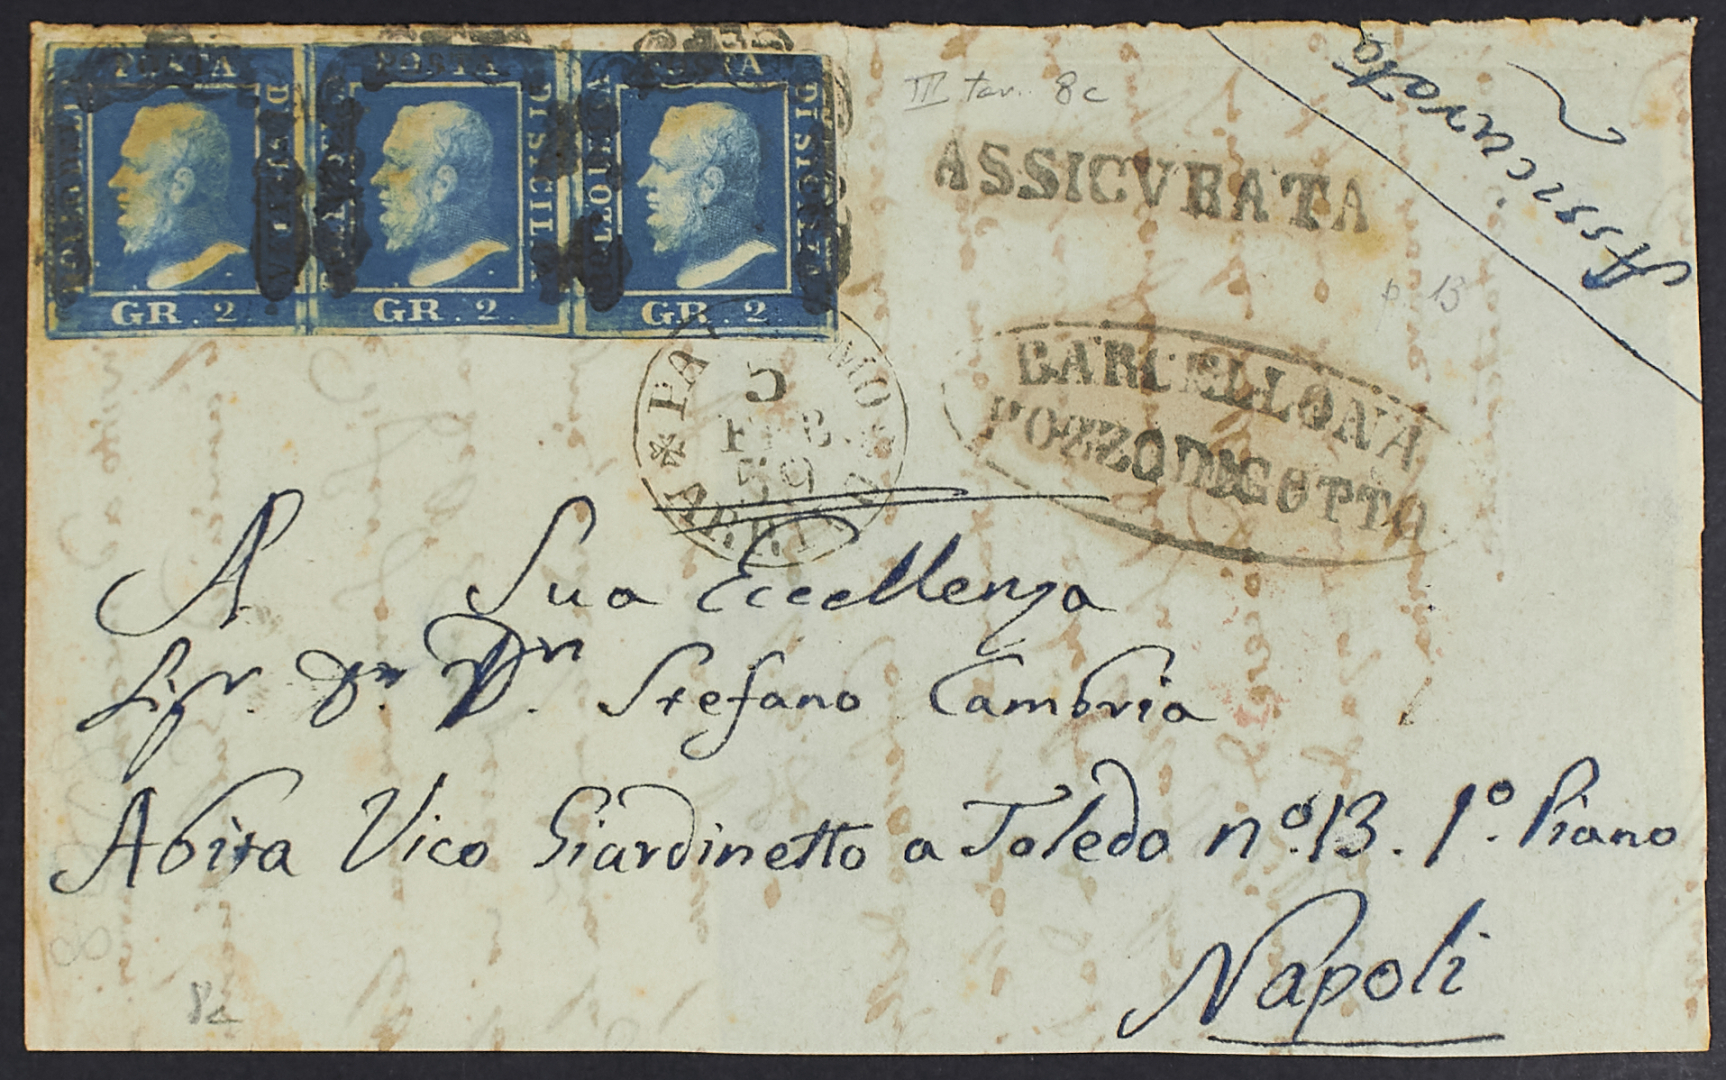 POSTA
DI SICILIA
GR. 2.
POSTA
DI SICILIA
GR. 2.
POSTA
BOLLO DELLA
DI SICILIA
GR. 2.
III tav. 8c
ASSICVRATA
Assicurata
p. 13
BARCELLONA
POZZODIGOTTO
PALERMO
5
FEB.
59
ARRIVO
A Sua Eccellenza
Sigr. Dn. Dn. Stefano Cambria
Abita Vico Giardinetto a Toledo nº. 13. 1º. Piano
Napoli
8c